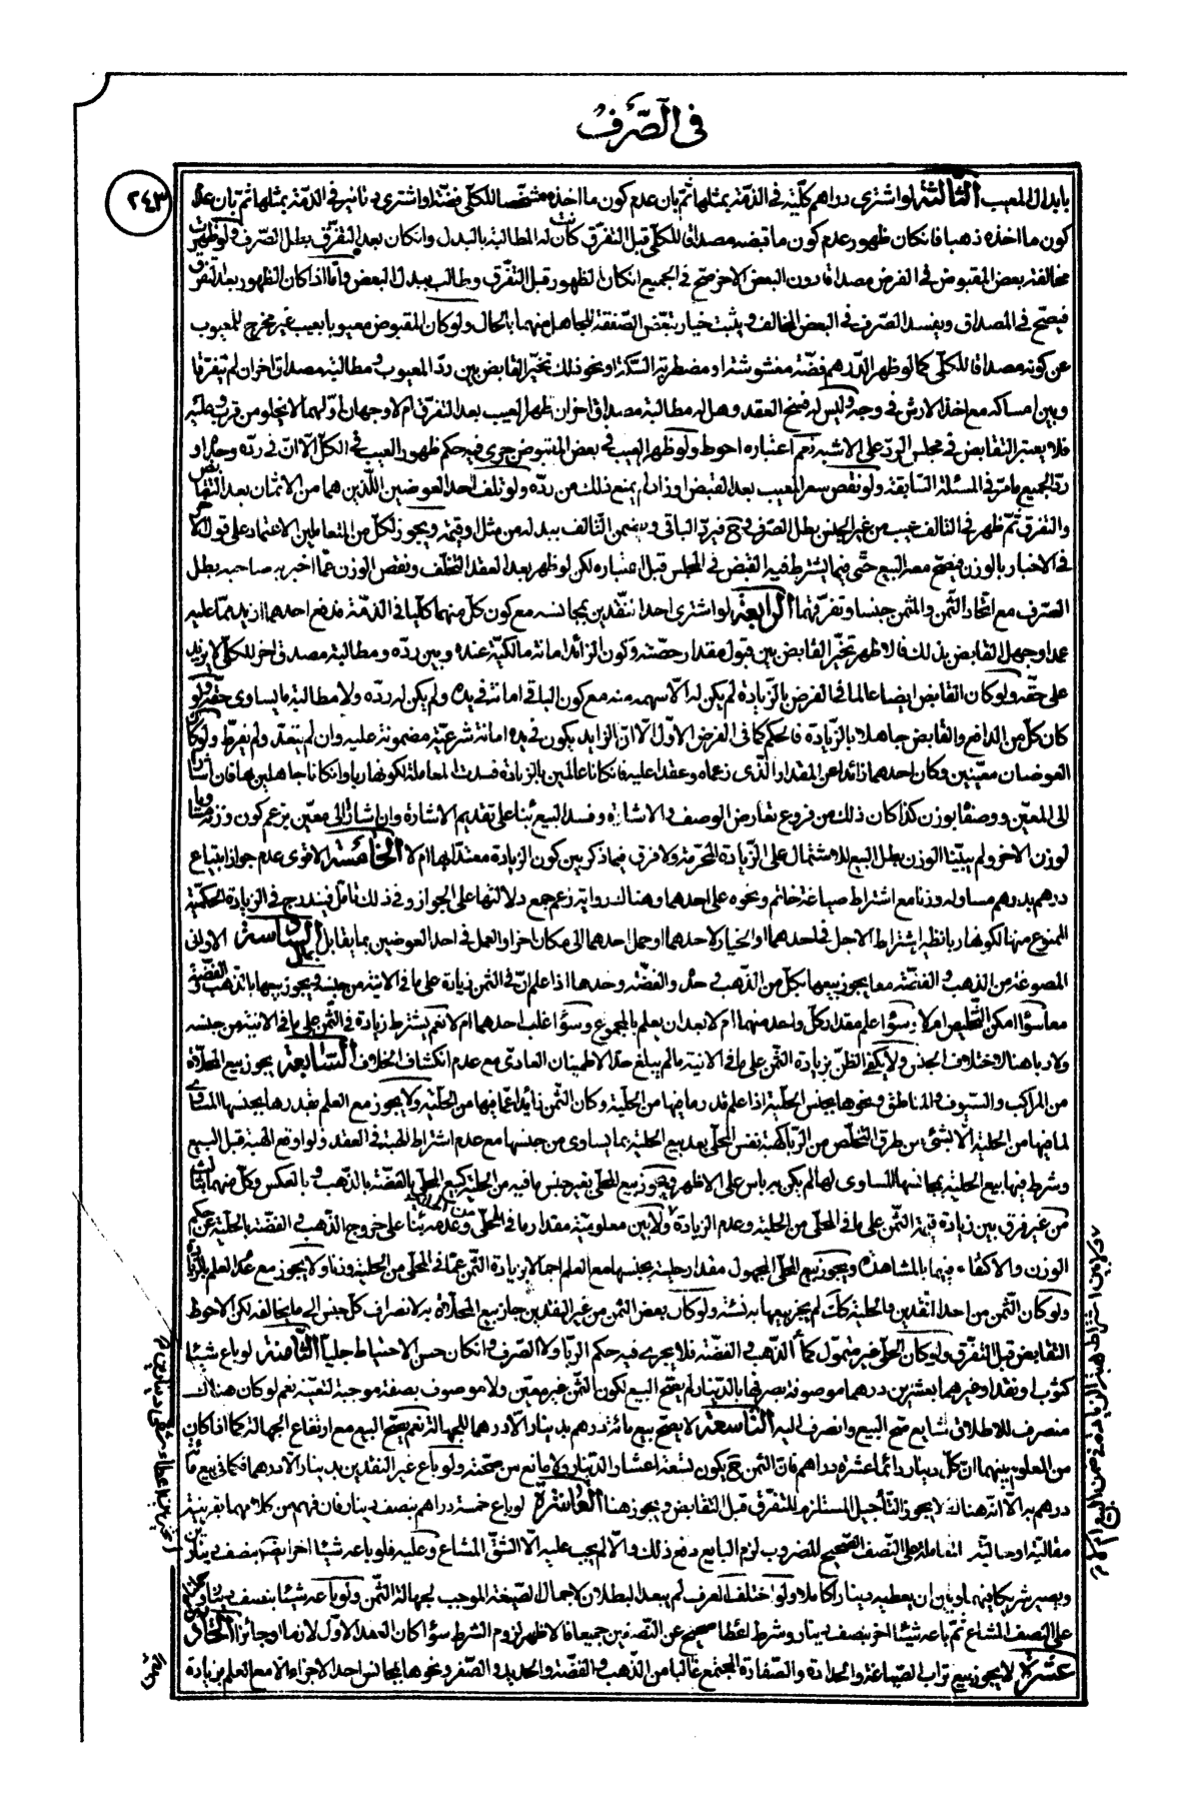 في الصرف
٢٤٣
بابدال المعيب الثالثة لو اشترى دراهم كلّية في الذمّة بمثلها ثمّ بان عدم كون ما اخذه مشخّصا للكلّي فضّة او اشترى دنانير في الذمّة بمثلها ثمّ بان عدم
كون ما اخذه ذهبا فانكان ظهور عدم كون ما قبضه مصداقا للكلّي قبل التفرّق كانت له المطالبة بالبدل وانكان بعد التفرّق بطل الصّرف ولو ظهرت
مخالفة بعض المقبوض في الفرض مصداقا دون البعض الاخر صحّ في الجميع انكان الظهور قبل التفرّق وطالب ببدل البعض وامّا اذا كان الظهور بعد التفرّق
فيصحّ في المصداق ويفسد الصّرف في البعض المخالف ويثبت خيار تبعّض الصّفقة للجاهل منهما بالحال ولو كان المقبوض معيوبا بعيب غير مخرج للمعيوب
عن كونه مصداقا للكلّي كما لو ظهر الدّرهم فضّة مغشوشة او مضطربة السّكّة او نحو ذلك تخيّر القابض بين ردّ المعيوب ومطالبة مصداق اخر ان لم يتفرّقا
وبين امساكه مع اخذ الارش في وجه وليس له فسخ العقد وهل له مطالبة مصداق اخر ان ظهر العيب بعد التفرّق ام لا وجهان اوّلهما لا يخلو من قرب وعليه
فلا يعتبر التقابض في مجلس الردّ على الاشبه نعم اعتباره احوط ولو ظهر العيب في بعض المقبوض جرى فيه حكم ظهور العيب في الكلّ الّا انّ في ردّه وحده او
ردّ الجميع ما مرّ في المسئلة السّابقة ولو نقص سعر المعيب بعد القبض او زاد لم يمنع ذلك من ردّه ولو تلف احد العوضين اللّذين هما من الاثمان بعد التقابض
والتفرق ثمّ ظهر في التالف عيب من غير الجنس بطل الصّرف وح فيردّ الباقي ويضمن التّالف ببدله من مثل او قيمة ويجوز لكلّ من المتعاملين الاعتماد على قول الاخر
في الاخبار بالوزن فيصحّ معه البيع حتّى فيما يشترط فيه القبض في المجلس قبل اعتباره لكن لو ظهر بعد العقد التخلّف ونقص الوزن عمّا اخبر به صاحبه بطل
الصّرف مع اتّحاد الثّمن والمثمن جنسا وتفرّقهما الرابعة لو اشترى احد النّقدين بمجانسه مع كون كلّ منهما كلّيا في الذمّة فدفع احدهما ازيد ممّا عليه
عمدا وجهل القابض بذلك فالاظهر تخيّر القابض بين قبول مقدار حصّته وكون الزائد امانة مالكيّة عنده وبين ردّه ومطالبة مصداق اخر للكلّي لا يزيد
على حقّه ولو كان القابض ايضا عالما في الفرض بالزّيادة لم يكن له الّا سهمه منه مع كون الباقي امانة في يده ولم يكن له ردّه ولا مطالبة ما يساوى حقّه ولو
كان كلّ من الدافع والقابض جاهلا بالزّيادة فالحكم كما في الفرض الاوّل الّا انّ الزايد يكون في يده امانة شرعيّة مضمونة عليه وان لم يتعدّ ولم يفرط ولو كان
العوضان معيّنين وكان احدهما زائدا عن المقدار الّذى زعماه وعقدا عليه فانكانا عالمين بالزّيادة فسدت المعاملة لكونها ربا وانكانا جاهلين بها فان اشارا
الى المعيّن ووصفا بوزن كذا كان ذلك من فروع تعارض الوصف والاشارة وفسد البيع بناء على تقديم الاشارة وان اشارا الى معيّن بزعم كون وزنه مساويا
لوزن الاخر ولم يبيّنا الوزن بطل البيع للاشتمال على الزّيادة المحرّمة ولا فرق فيما ذكر بين كون الزيادة معتدّا بها ام لا الخامسة الاقوى عدم جواز ابتياع
درهم بدرهم مساو له وزنا مع اشتراط صياغة خاتم ونحوه على احدهما وهناك رواية زعم جمع دلالتها على الجواز وفي ذلك تامّل فيندرج في الزيادة الحكميّة
الممنوع منها لكونها ربا نظير اشتراط الاجل في احدهما او الخيار لاحدهما او حمل احدهما الى مكان اخر او العمل في احد العوضين بما يقابل بمال السّادسة الاواني
المصوغة من الذهب والفضّة معا يجوز بيعها بكلّ من الذّهب وحده والفضّة وحدها اذا علم انّ في الثمن زيادة على ما في الانية من جنسه ويجوز بيعها بالذّهب والفضّة
معا سواء امكن التّخليص ام لا وسواء علم مقدار كلّ واحد منهما ام لا بعد ان يعلم بالمجموع وسواء اغلب احدهما ام لا نعم يشترط زيادة في الثّمن على ما في الانية من جنسه
ولا ربا هنا لاختلاف الجنس ولا يكفى الظنّ بزيادة الثّمن على ما في الانية ما لم يبلغ حدّ الاطمينان العادى مع عدم انكشاف الخلاف السّابعة يجوز بيع المحلّاة
من المراكب والسّيوف والمناطق ونحوها بجنس الحلية اذا علم قدر ما فيها من الحلية وكان الثّمن زائدا عمّا فيها من الحلية ولا يجوز مع العلم بقدرها بجنسها المساوى
لما فيها من الحلية الّا بشئ من طرق التخلّص من الرّبا كهبة نفس المحلّى بعد بيع الحلية بما يساوى من جنسها مع عدم اشتراط الهبة في العقد ولو اوقع الهبة قبل البيع
وشرط فيها بيع الحلية بمجانسها المساوى لها لم يكن به باس على الاظهر ويجوز بيع المحلّى بغير جنس ما فيه من الحلية كبيع المحلّى بالفضّة بالذّهب وبالعكس وكلّ منهما بثالث
من غير فرق بين زيادة قيمة الثّمن على ما في المحلّى من الحلية وعدم الزيادة ولا بين معلوميّة مقدار ما في المحلّى من الحلية وعدمه بناء على خروج الذّهب والفضّة بالحلية عن حكم
الوزن والاكتفاء فيهما بالمشاهدة ويجوز بيع المحلّى المجهول مقدار حليته بجنسها مع العلم اجمالا بزيادة الثّمن عمّا في المحلّى من الحلية وزنا ولا يجوز مع عدم العلم بالزيادة
ولو كان الثّمن من احد النقدين والحلية كك لم يجز بيعها به نسئة ولو كان بعض الثّمن من غير النقدين جاز بيع المحلّاة به لانصراف كلّ جنس الى ما يخالفه لكن الاحوط
التقابض قبل التفرّق ولو كان المحلّى غير متموّل كماء الذّهب والفضّة فلا يجرى فيه حكم الرّبا ولا الصّرف وانكان حسن الاحتياط جليّا الثّامنة لو باع شيئا
كثوب او نقد او غيرهما بعشرين درهما موصوفة بصرفها بالدّينار لم يصحّ البيع لكون الثّمن غير معيّن ولا موصوف بصفة موجبة لتعيّنه نعم لو كان هناك
منصرف للاطلاق شايع صحّ البيع وانصرف اليه التّاسعة لا يصحّ بيع مائة درهم بدينار الّا درهما للجهالة نعم يصحّ البيع مع ارتفاع الجهالة كما اذا كان
من المعلوم بينهما انّ كلّ دينار دائما عشرة دراهم فانّ الثّمن ح يكون تسعة اعشار الدّينار ولا مانع من صحّته ولو باع غير النقدين بدينار الّا درهما فكما في بيع مائة
درهم به الّا انّه هناك لا يجوز التّأجيل المستلزم للتّفرّق قبل التقابض ويجوز هنا العاشرة لو باع خمسة دراهم بنصف دينار فان فهم من كلامهما بقرينة
مقالية او حالية المعاملة على النّصف الصّحيح المضروب لزم البايع دفع ذلك والّا لم يجب عليه الّا الشقّ المشاع وعليه فلو باعه شيئا اخر ايضا بنصف دينار
ويصير شريكا فيهما وبين ان يعطيه دينارا كاملا ولو اختلف العرف لم يبعد البطلان لاجمال الصّيغة الموجب لجهالة الثّمن ولو باعه شيئا بنصف دينار
على النّصف المشاع ثمّ باعه شيئا اخر بنصف دينار وشرط اعطاء صحيح عن النّصفين جميعا فالاظهر لزوم الشّرط سواء كان العقد الاوّل لازما او جائزا الحادية
عشرة لا يجوز بيع تراب الصّياغة والحدادة والصّفارة المجتمع غالبا من الذّهب والفضّة والحديد والصّفر ونحوها بمجانس احد الاجزاء الا مع العلم بزيادة